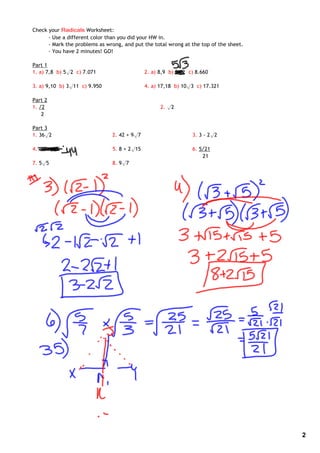 Check your Radicals Worksheet:
- Use a different color than you did your HW in.
- Mark the problems as wrong, and put the total wrong at the top of the sheet.
- You have 2 minutes! GO!
Part 1
5√3
1. a) 7,8 b) 5√2 c) 7.071 2. a) 8,9 b) c) 8.660
3. a) 9,10 b) 3√11 c) 9.950 4. a) 17,18 b) 10√3 c) 17.321
Part 2
1. √2 2. √2
2
Part 3
1. 36√2 2. 42 + 9√7 3. 3 - 2√2
4. -44 5. 8 + 2√15 6. 5√21
21
7. 5√5 8. 9√7
3) (√2-1)²
(√2-1)(√2-1)
√2√2
2-1√2-√2 +1
2-2√2+1
3-2√2
4) (√3+√5)²
(√3+√5)(√3+√5)
3+√15+√15+5
3+2√15+5
8+2√15
6) √5/7 × √5/3 = √25/21 = √25/√21 = 5/√21 √21/√21
= 5√21/21
35)
x y
2